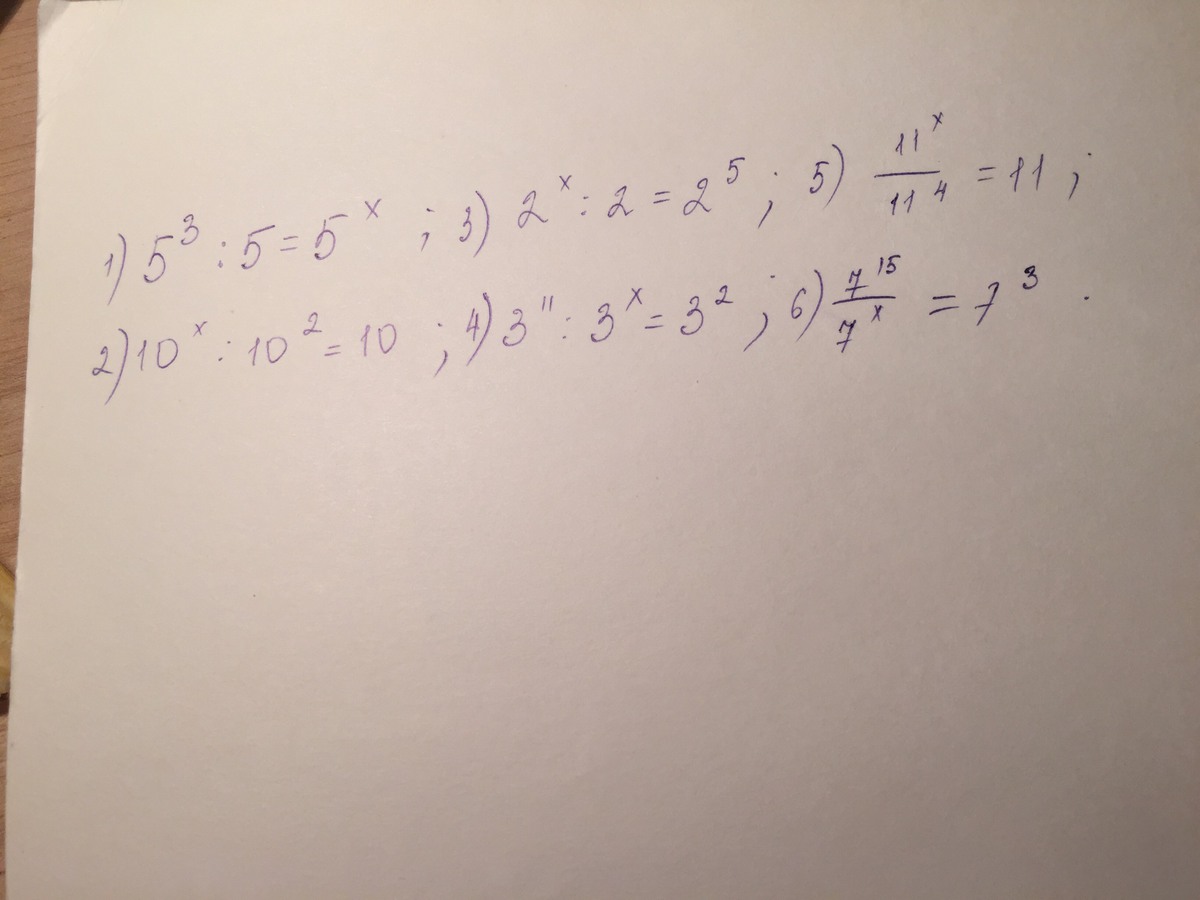 1) 5³ : 5 = 5ˣ ; 3) 2ˣ : 2 = 2⁵ ; 5) 11ˣ/11⁴ = 11 ;
2) 10ˣ : 10² = 10 ; 4) 3¹¹ : 3ˣ = 3² ; 6) 7¹⁵/7ˣ = 7³ .